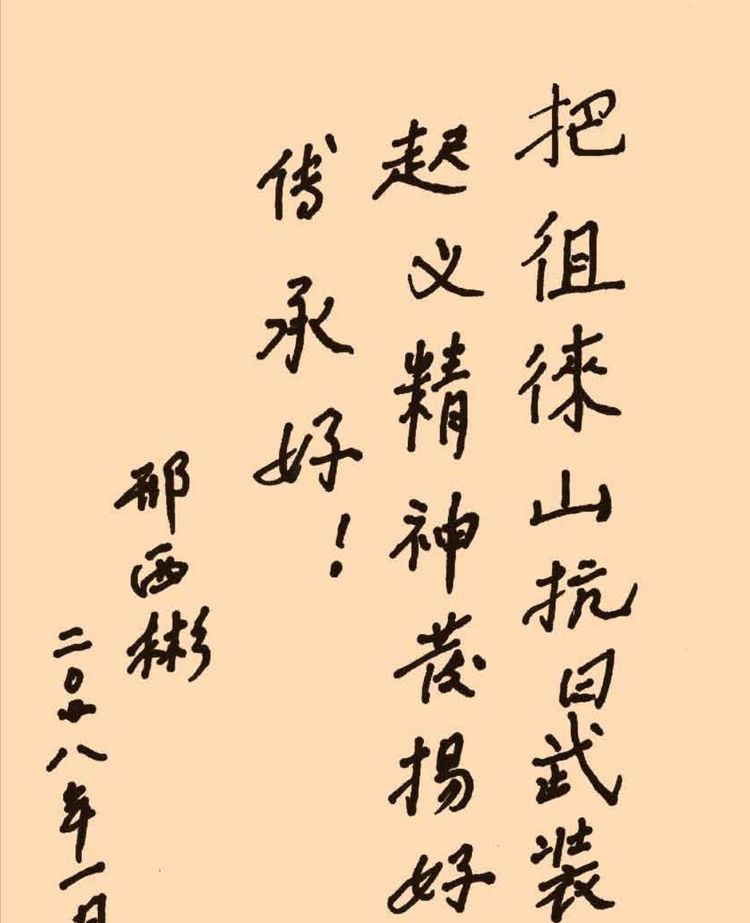 把徂徕山抗日武装
起义精神发揚好
传承好！
邢西彬
二〇一八年一月